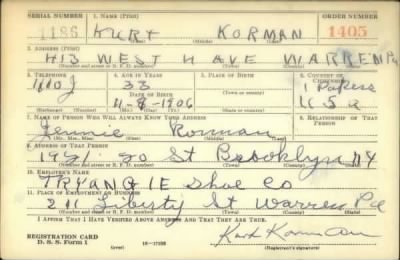 SERIAL NUMBER 1. NAME (Print) ORDER NUMBER
1186 KURT KORMAN 1405
(First) (Middle) (Last)
2. ADDRESS (Print)
413 WEST 4 AVE WARREN Pa
(Number and street or R. F. D. number) (Town) (County) (State)
3. TELEPHONE 4. AGE IN YEARS 5. PLACE OF BIRTH 6. COUNTRY OF CITIZENSHIP
33
DATE OF BIRTH 1 Papers
4-8-1906 U S a
(Mo.) (Day) (Yr.) (State or country)
7. NAME OF PERSON WHO WILL ALWAYS KNOW YOUR ADDRESS 8. RELATIONSHIP OF THAT PERSON
Jennie Korman
(Mr., Mrs., Miss) (First) (Middle) (Last)
9. ADDRESS OF THAT PERSON
1921-20 St Brooklyn NY
(Number and street or R. F. D. number) (Town) (County) (State)
10. EMPLOYER'S NAME
TRYANGlE Shoe Co
11. PLACE OF EMPLOYMENT OR BUSINESS
211 Liberty St Warren Pa
(Number and street or R. F. D. number) (Town) (County) (State)
I AFFIRM THAT I HAVE VERIFIED ABOVE ANSWERS AND THAT THEY ARE TRUE.
REGISTRATION CARD
D. S. S. Form 1 (over) 16—17105 Kurt Korman
(Registrant's signature)